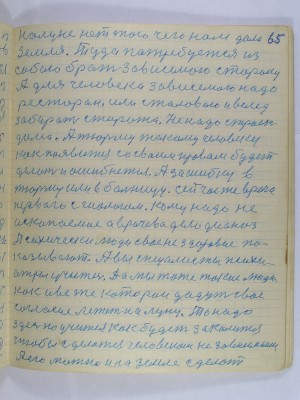 на луне нет того чего нам дала 65
Земля. Туда потребуется из
собою брать зависимою сторону
А для человека зависимою надо
ресторан, или столовою и вслед
забирать сторожа. Не надо строен
дома. А
как появится со своим правам будет
делить и ошибется. А за ошибку в
тюрму или в больницу. Сейчас же врача
первого с диологом. Кому надо не
ископаемое а врачева дело диагноз
Психически людь свое не здоровье по-
казывают. А вы специалисты
учитись. Да мы тоже такие люди,
как и все же которые дадут свое
согласие лететь на луну. То надо
здесь поучится как будет закалится
чтобы сделаться человеком не зависимым
А его можно и на земле сделать